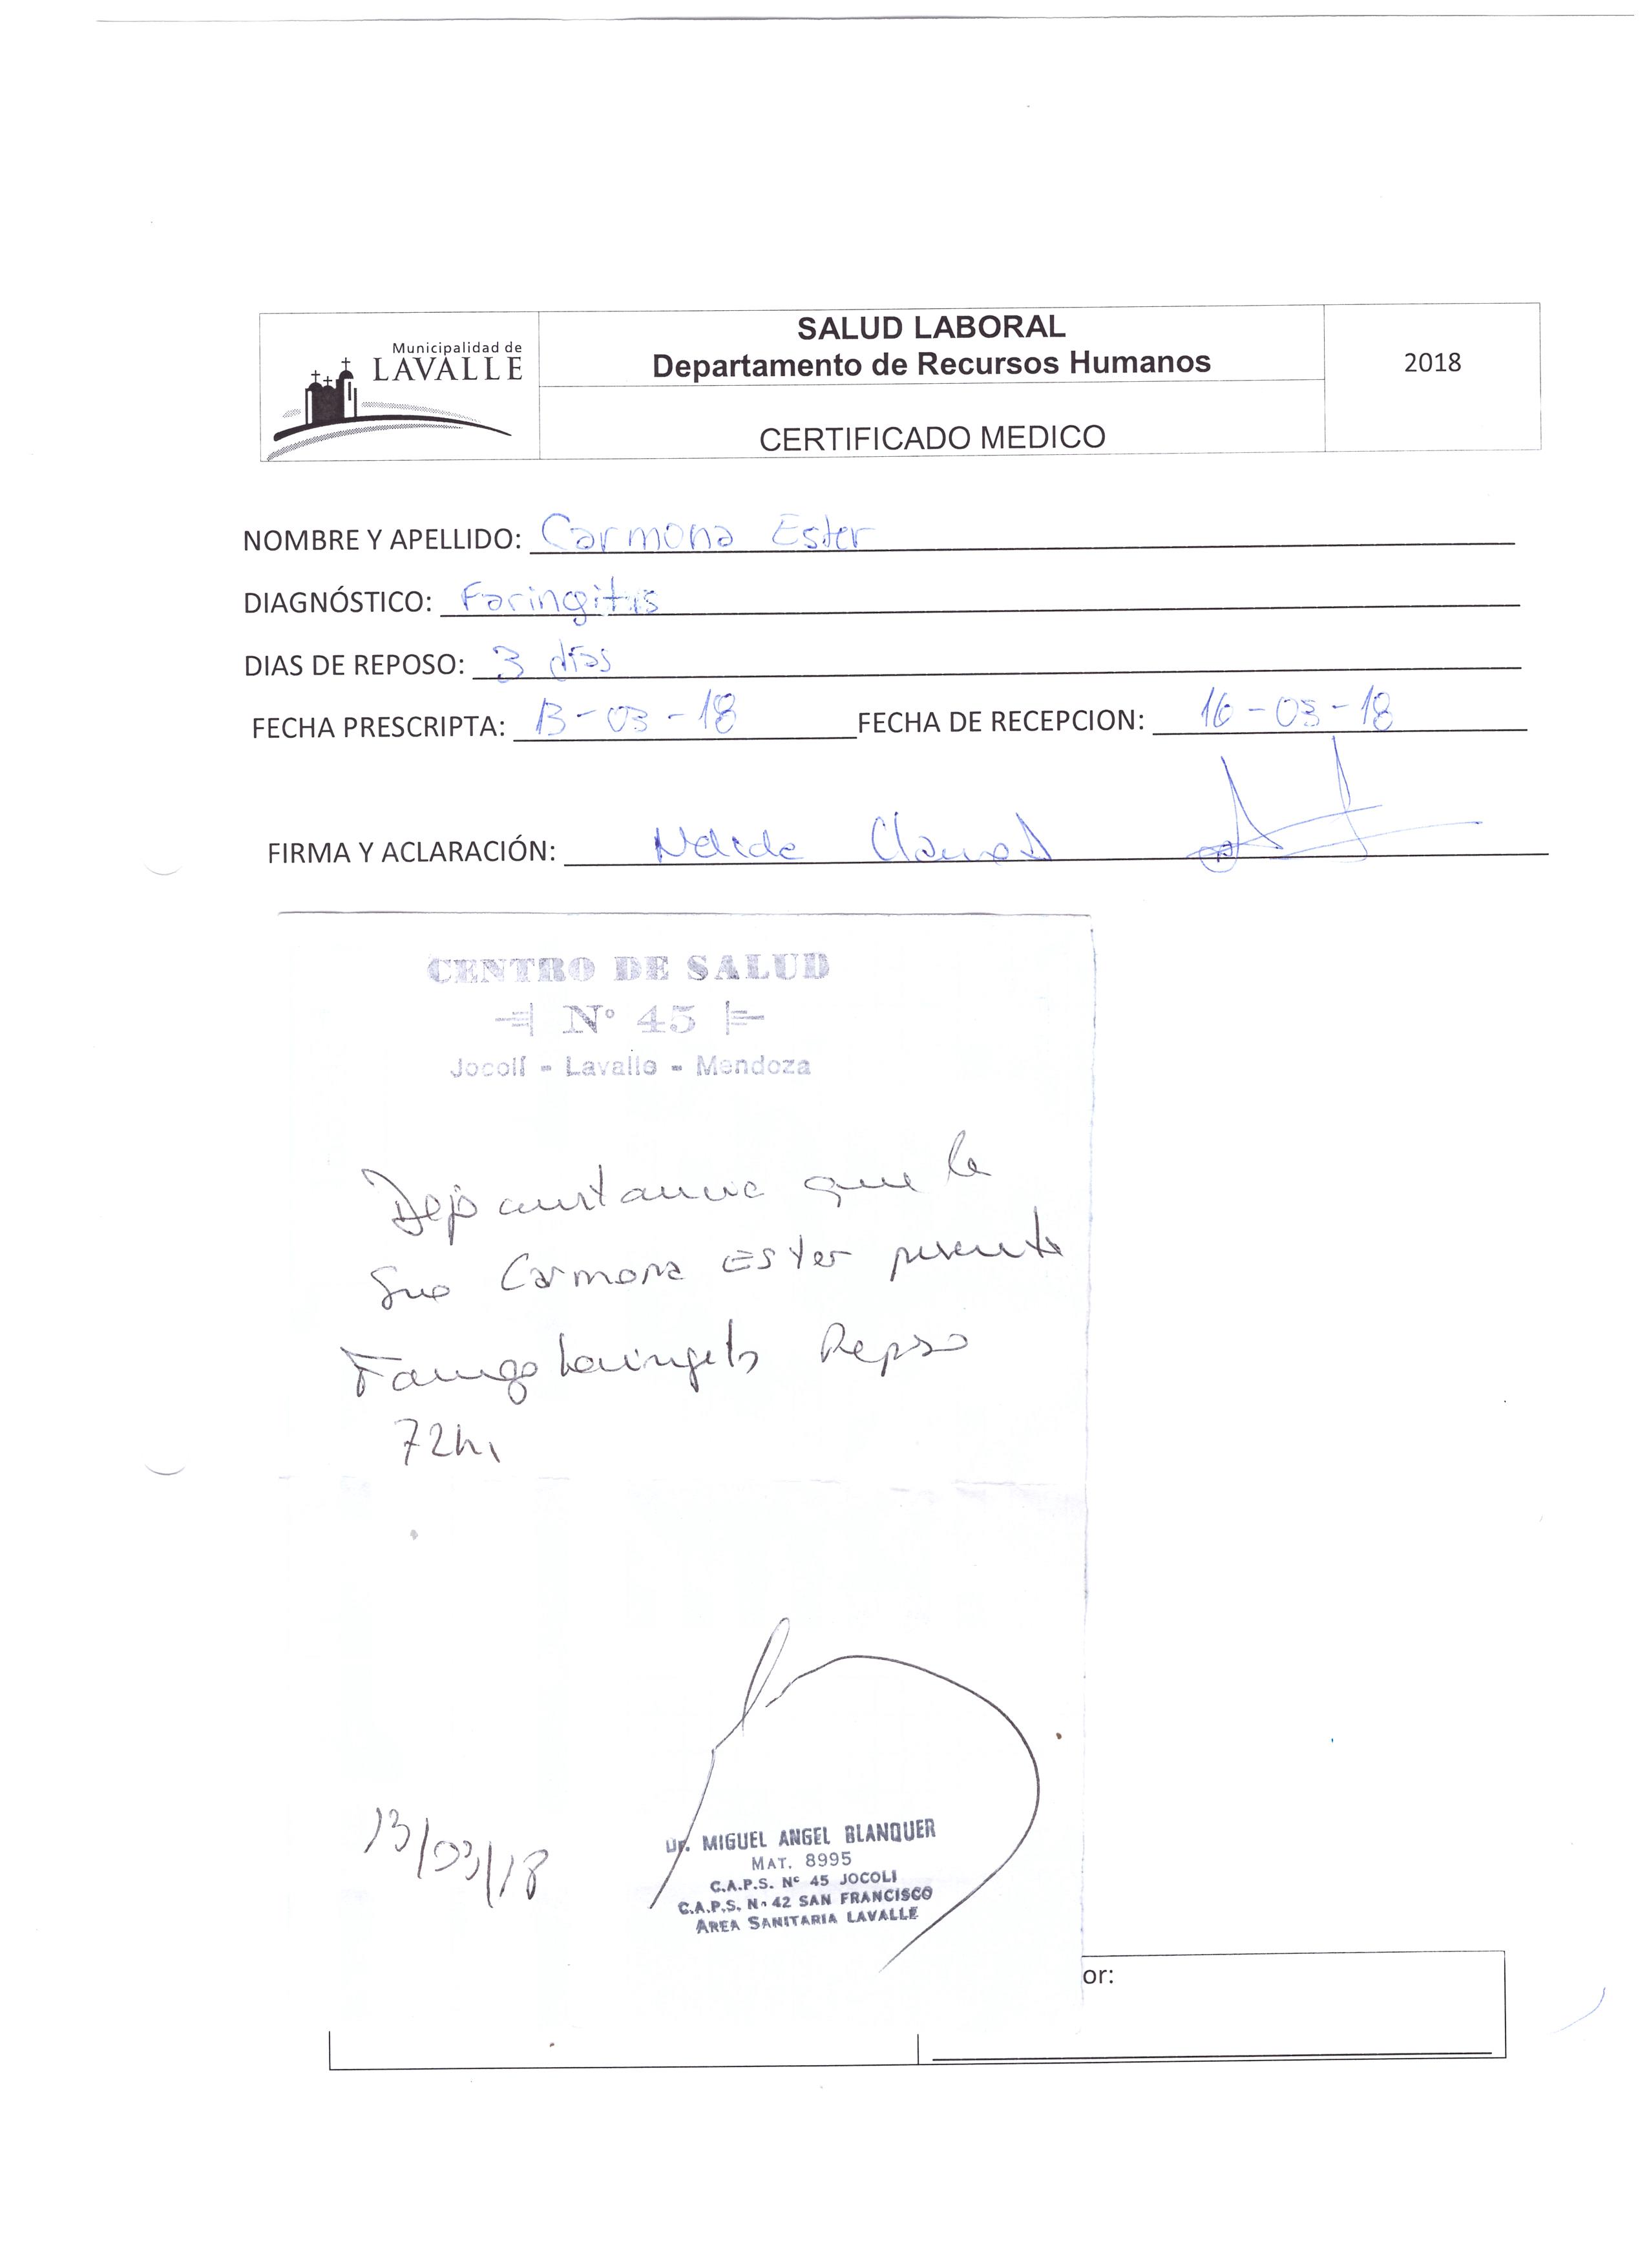 Municipalidad de
LAVALLE
SALUD LABORAL
Departamento de Recursos Humanos
CERTIFICADO MEDICO
2018
NOMBRE Y APELLIDO: Carmona Ester
DIAGNÓSTICO: Faringitis
DIAS DE REPOSO: 3 días
FECHA PRESCRIPTA: 13-03-18 FECHA DE RECEPCION: 16-03-18
FIRMA Y ACLARACIÓN: Nelida
CENTRO DE SALUD
Nº 45
Jocolí - Lavalle - Mendoza
Dejo constancia que la
Sra Carmona Ester presenta
Faringolaringitis Reposo
72hs
13/03/18
Dr. MIGUEL ANGEL BLANQUER
MAT. 8995
C.A.P.S. Nº 45 JOCOLI
C.A.P.S. Nº 42 SAN FRANCISCO
AREA SANITARIA LAVALLE
or: